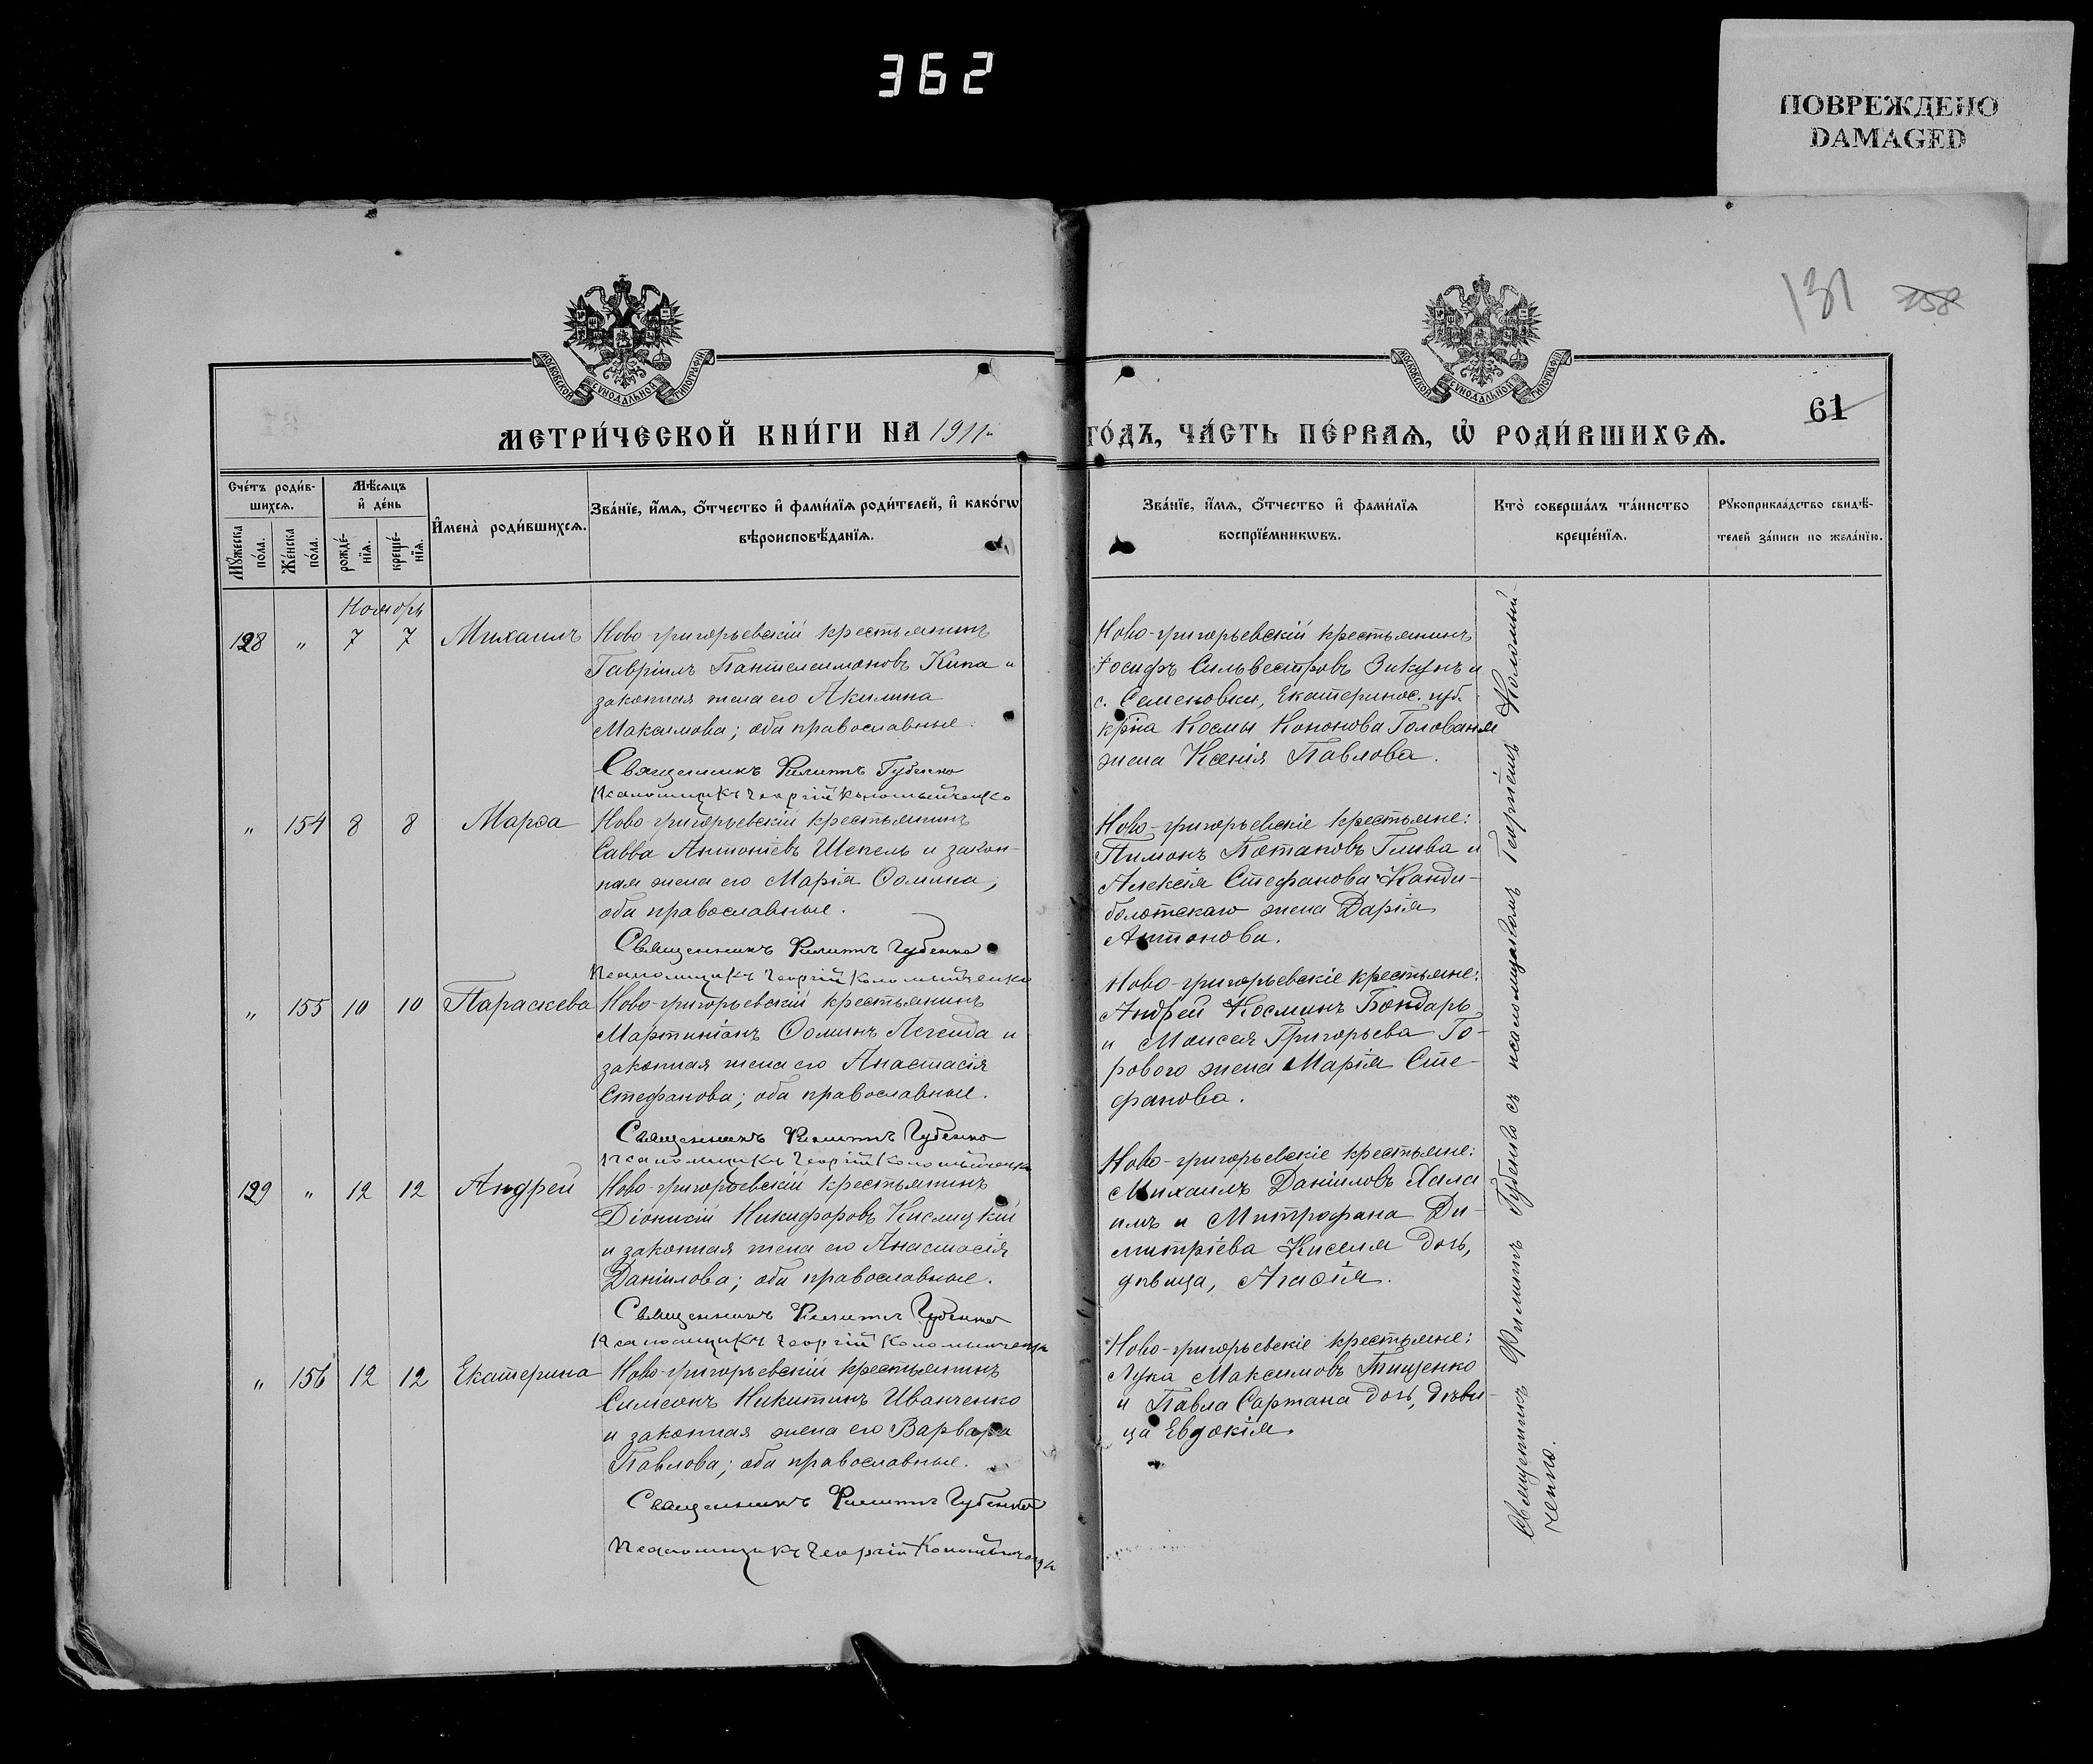 362
ПОВРЕЖДЕНО
DAMAGED
131 258
МОСКОВСКОЙ СУНОДАЛЬНОЙ ТИПОГРАФІИ
МОСКОВСКОЙ СУНОДАЛЬНОЙ ТИПОГРАФІИ
61
МЕТРИ́ЧЕСКОЙ КНИ́ГИ НА 1911 ГО́ДЪ, ЧА́СТЬ ПЕ́РВАѦ, Ѡ҆ РОДИ́ВШИХСѦ.
Сче́тъ роди́в-
шихсѧ.
Мꙋжеска
по́ла.
Же́нска
по́ла.
Мѣ́сѧцъ
и҆ де́нь
рожде́-
нїѧ.
креще́-
нїѧ.
И҆мена̀ роди́вшихсѧ.
Зва́нїе, и҆́мѧ, ѻ҆́тчество и҆ фами́лїѧ роди́телей, и҆ како́гѡ
вѣроисповѣ́данїѧ.
Зва́нїе, и҆́мѧ, ѻ҆́тчество и҆ фами́лїѧ
воспрїе́мникѡвъ.
Кто̀ соверша́лъ та́инство
креще́нїѧ.
Рꙋкоприкла́дство свидѣ́-
телей за́писи по жела́нїю.
Ноябрь
128 " 7 7 Михаилъ
Ново-григорьевскій крестьянинъ
Гавріилъ Пантелеимоновъ Кипа и
законная жена его Акилина
Максимова; оба православные.
Священникъ Филиппъ Губенко
Псаломщикъ Георгій Коломыйченко
Ново-григорьевскій крестьянинъ
Іосифъ Сильвестровъ Зикунъ и
с. Семеновки, Екатеринос. губ.
кр̃на Космы Кононова Голованя
жена Ксенія Павлова.
" 154 8 8 Марѳа
Ново-григорьевскій крестьянинъ
Савва Антоніевъ Шепель и закон-
ная жена его Марія Ѳомина;
оба православные.
Священникъ Филиппъ Губенко
Псаломщикъ Георгій Коломыйченко
Ново-григорьевскіе крестьяне:
Пимонъ Потаповъ Глива и
Алексія Стефанова Канди-
болотскаго жена Дарія
Антонова.
" 155 10 10 Параскева
Ново-григорьевскій крестьянинъ
Мартиніанъ Ѳоминъ Легенда и
законная жена его Анастасія
Стефанова; оба православные.
Священникъ Филиппъ Губенко
Псаломщикъ Георгій Коломыйченко
Ново-григорьевскіе крестьяне:
Андрей Косминъ Бондарь
и Моисея Григорьева Го-
рового жена Марія Сте-
фанова.
129 " 12 12 Андрей
Ново-григорьевскій крестьянинъ
Діонисій Никифоровъ Кислицкій
и законная жена его Анастасія
Даніилова; оба православные.
Священникъ Филиппъ Губенко
Псаломщикъ Георгій Коломыйченко
Ново-григорьевскіе крестьяне:
Михаилъ Даніиловъ Хала
имъ и Митрофана Ди-
митріева Киселя дочь,
дѣвица, Агаѳія.
" 156 12 12 Екатерина
Ново-григорьевскій крестьянинъ
Симеонъ Никитинъ Иванченко
и законная жена его Варвара
Павлова; оба православные.
Священникъ Филиппъ Губенко
Псаломщикъ Георгій Коломыйченко
Ново-григорьевскіе крестьяне:
Лука Максимовъ Тищенко
и Павла Сартана дочь, дѣви-
ца Евдокія.
Священникъ Филиппъ Губенко съ псаломщикомъ Георгіемъ Коломый-
ченко.